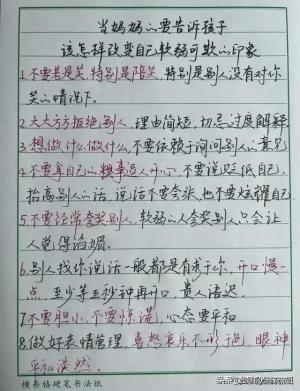 当妈妈的要告诉孩子
该怎样改变自己软弱可欺的印象
1.不要老是笑,特别是陪笑,特别是别人没有对你
笑的情况下。
2.大大方方拒绝别人,理由简短,切忌过度解释
3.想做什么做什么,不要依赖于询问别人的意见
4.不要拿自己的糗事逗人开心,不要说贬低自己,
抬高别人的话,说话不要夸张,也不要炫耀自己.
5.不要经常夸奖别人,软弱的人夸奖别人只会让
人觉得谄媚.
6.别人找你说话一般都是有求于你,开口慢一
点,至少等五秒钟再开口,贵人语迟.
7.不要胆小,不要惊谎,心态要平和
8.做好表情管理,喜怒哀乐不形于色,眼神
平和淡然.
横条格硬笔书法纸